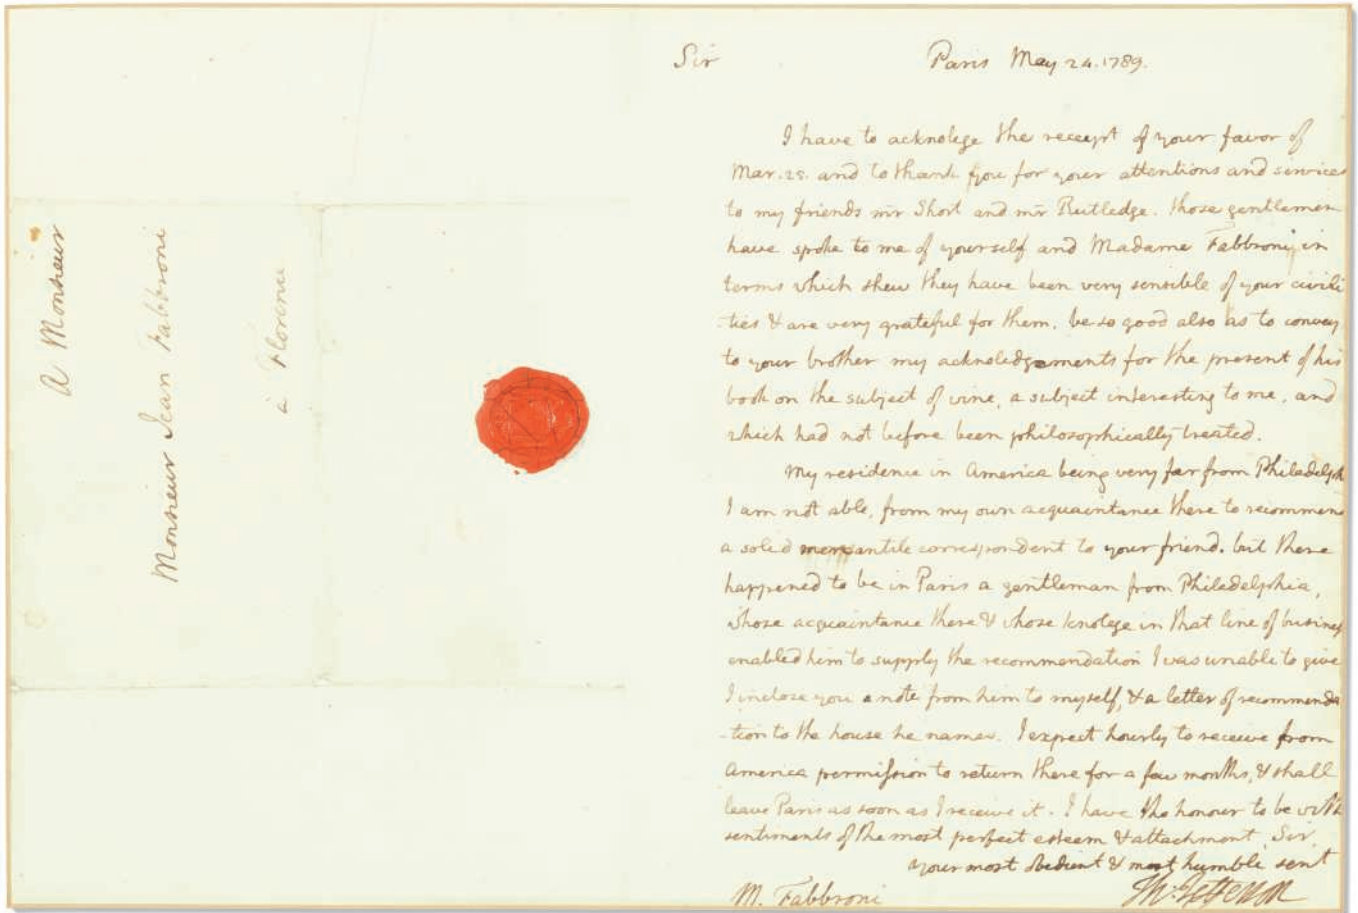 A Monsieur
Monsieur Jean Fabbroni
à Florence
Sir Paris May 24. 1789.
I have to acknolege the receipt of your favor of
Mar. 25. and to thank you for your attentions and services
to my friends mr Short and mr Rutledge. those gentlemen
have spoke to me of yourself and Madame Fabbroni in
terms which shew they have been very sensible of your civili
-ties & are very grateful for them. be so good also as to convey
to your brother my acknoledgements for the present of his
book on the subject of vine, a subject interesting to me, and
which had not before been philosophically treated.
My residence in America being very far from Philadelph
I am not able, from my own acquaintance there to recommen
a solid mercantile correspondent to your friend. but there
happened to be in Paris a gentleman from Philadelphia,
whose acquaintance there & whose knolege in that line of busines
enabled him to supply the recommendation I was unable to give
I inclose you a note from him to myself, & a letter of recommenda
-tion to the house he names. I expect hourly to receive from
America permission to return there for a few months, & shall
leave Paris as soon as I receive it. I have the honour to be with
sentiments of the most perfect esteem & attachment, Sir,
your most obedient & most humble servt
M. Fabbroni Th: Jefferson